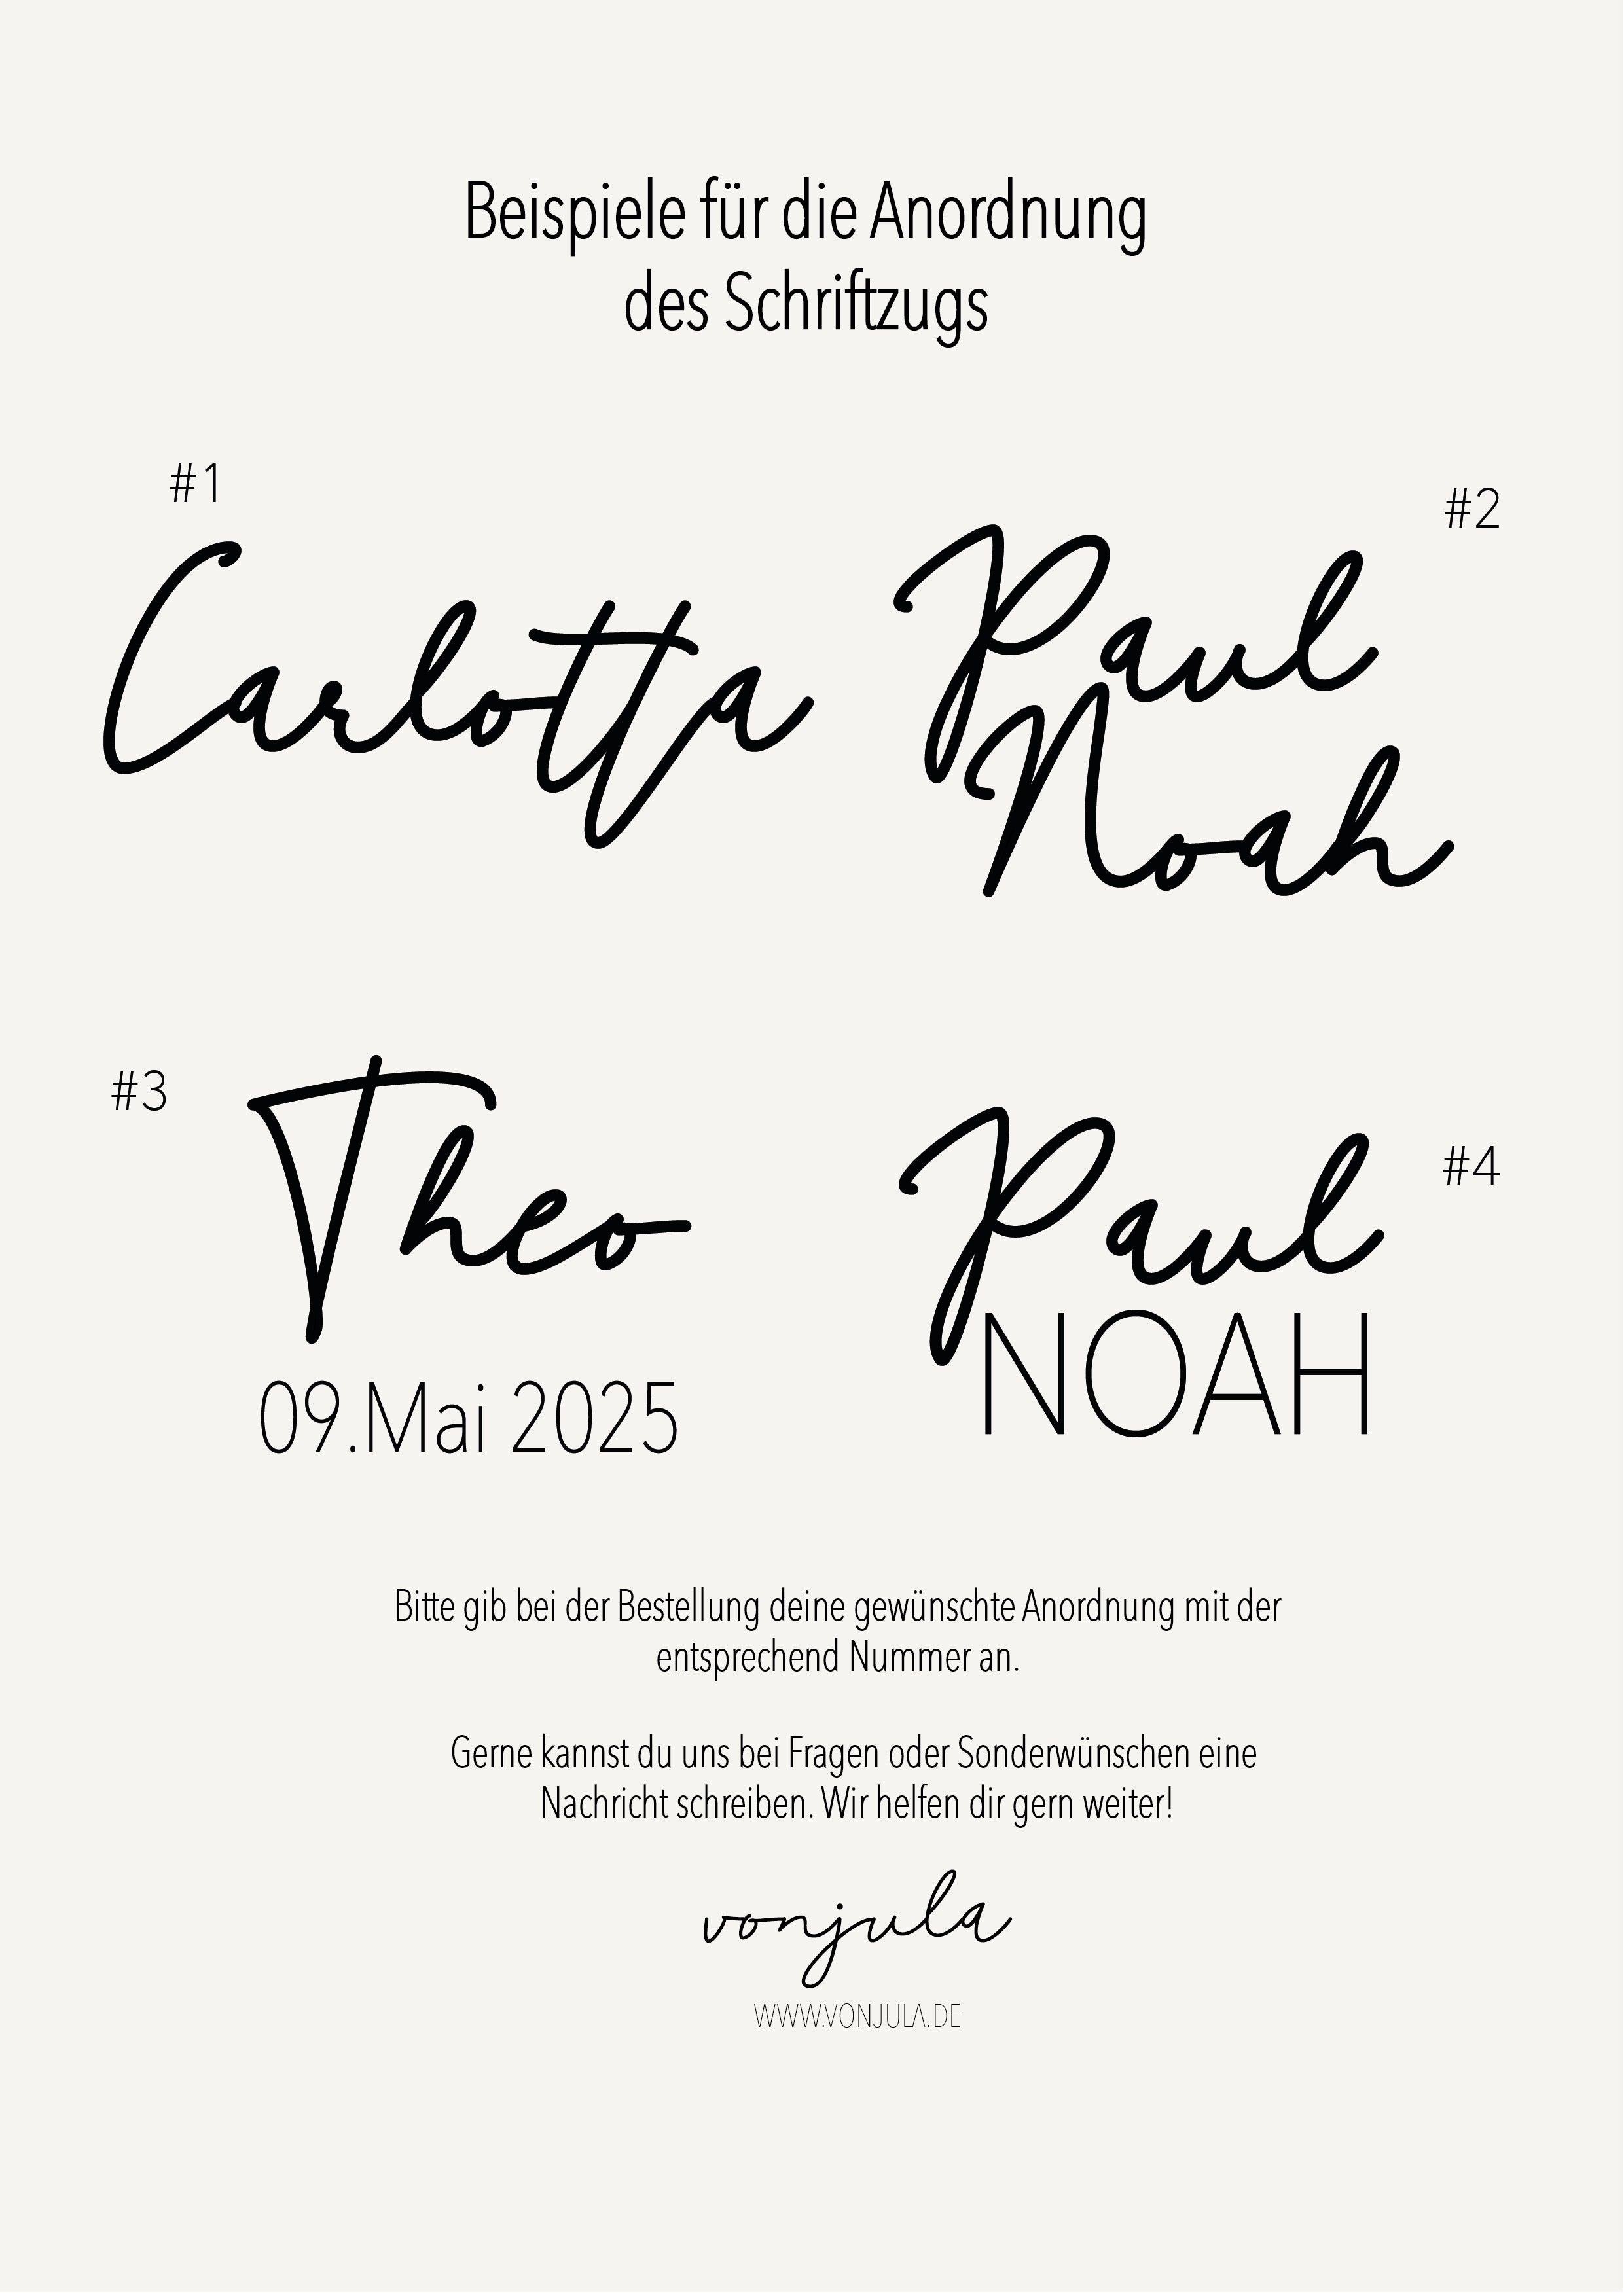 Beispiele für die Anordnung
des Schriftzugs
#1
Carlotta
#2
Paul
Noah
#3
Theo
09.Mai 2025
#4
Paul
NOAH
Bitte gib bei der Bestellung deine gewünschte Anordnung mit der
entsprechend Nummer an.
Gerne kannst du uns bei Fragen oder Sonderwünschen eine
Nachricht schreiben. Wir helfen dir gern weiter!
vonjula
WWW.VONJULA.DE